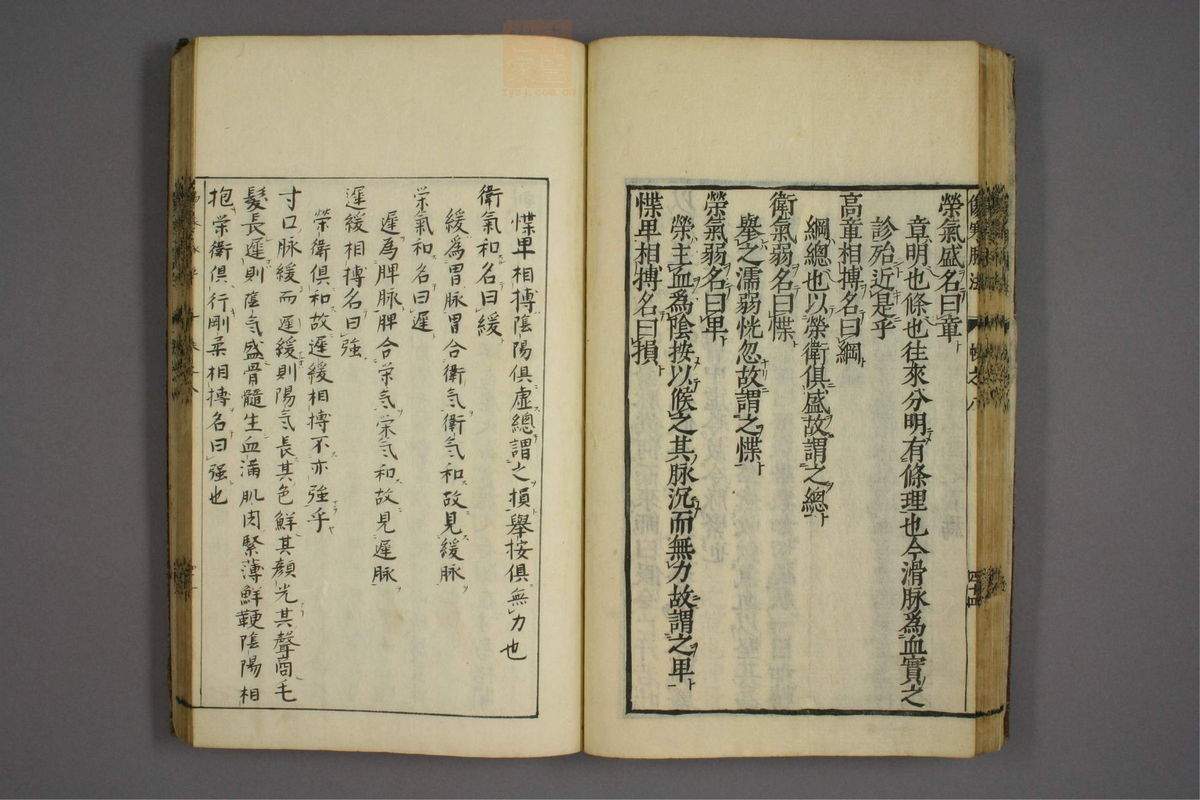 榮氣盛名曰章
章明也條也往來分明有條理也今滑脉爲血實之
診殆近是乎
高章相搏名曰綱
綱總也以榮衛俱盛故謂之總
衛氣弱名曰惵
舉之濡弱恍忽故謂之惵
榮氣弱名曰卑
榮主血爲陰按以候之其脉沉而無力故謂之卑
惵卑相搏名曰損
惵卑相搏陰陽俱虛總謂之損舉按俱無力也
衛氣和名曰緩
緩爲胃脉胃合衛気衛気和故見緩脉
栄氣和名曰遲
遲爲脾脉脾合栄気栄気和故見遲脉
遲緩相搏名曰強
榮衛俱和故遲緩相搏不亦強乎
寸口脉緩而遲緩則陽気長其色鮮其顔光其聲商毛
髮長遲則陰気盛骨髓生血滿肌肉緊薄鮮鞕陰陽相
抱栄衛俱行剛柔相搏名曰强也
傷寒脉法
之八
四十四